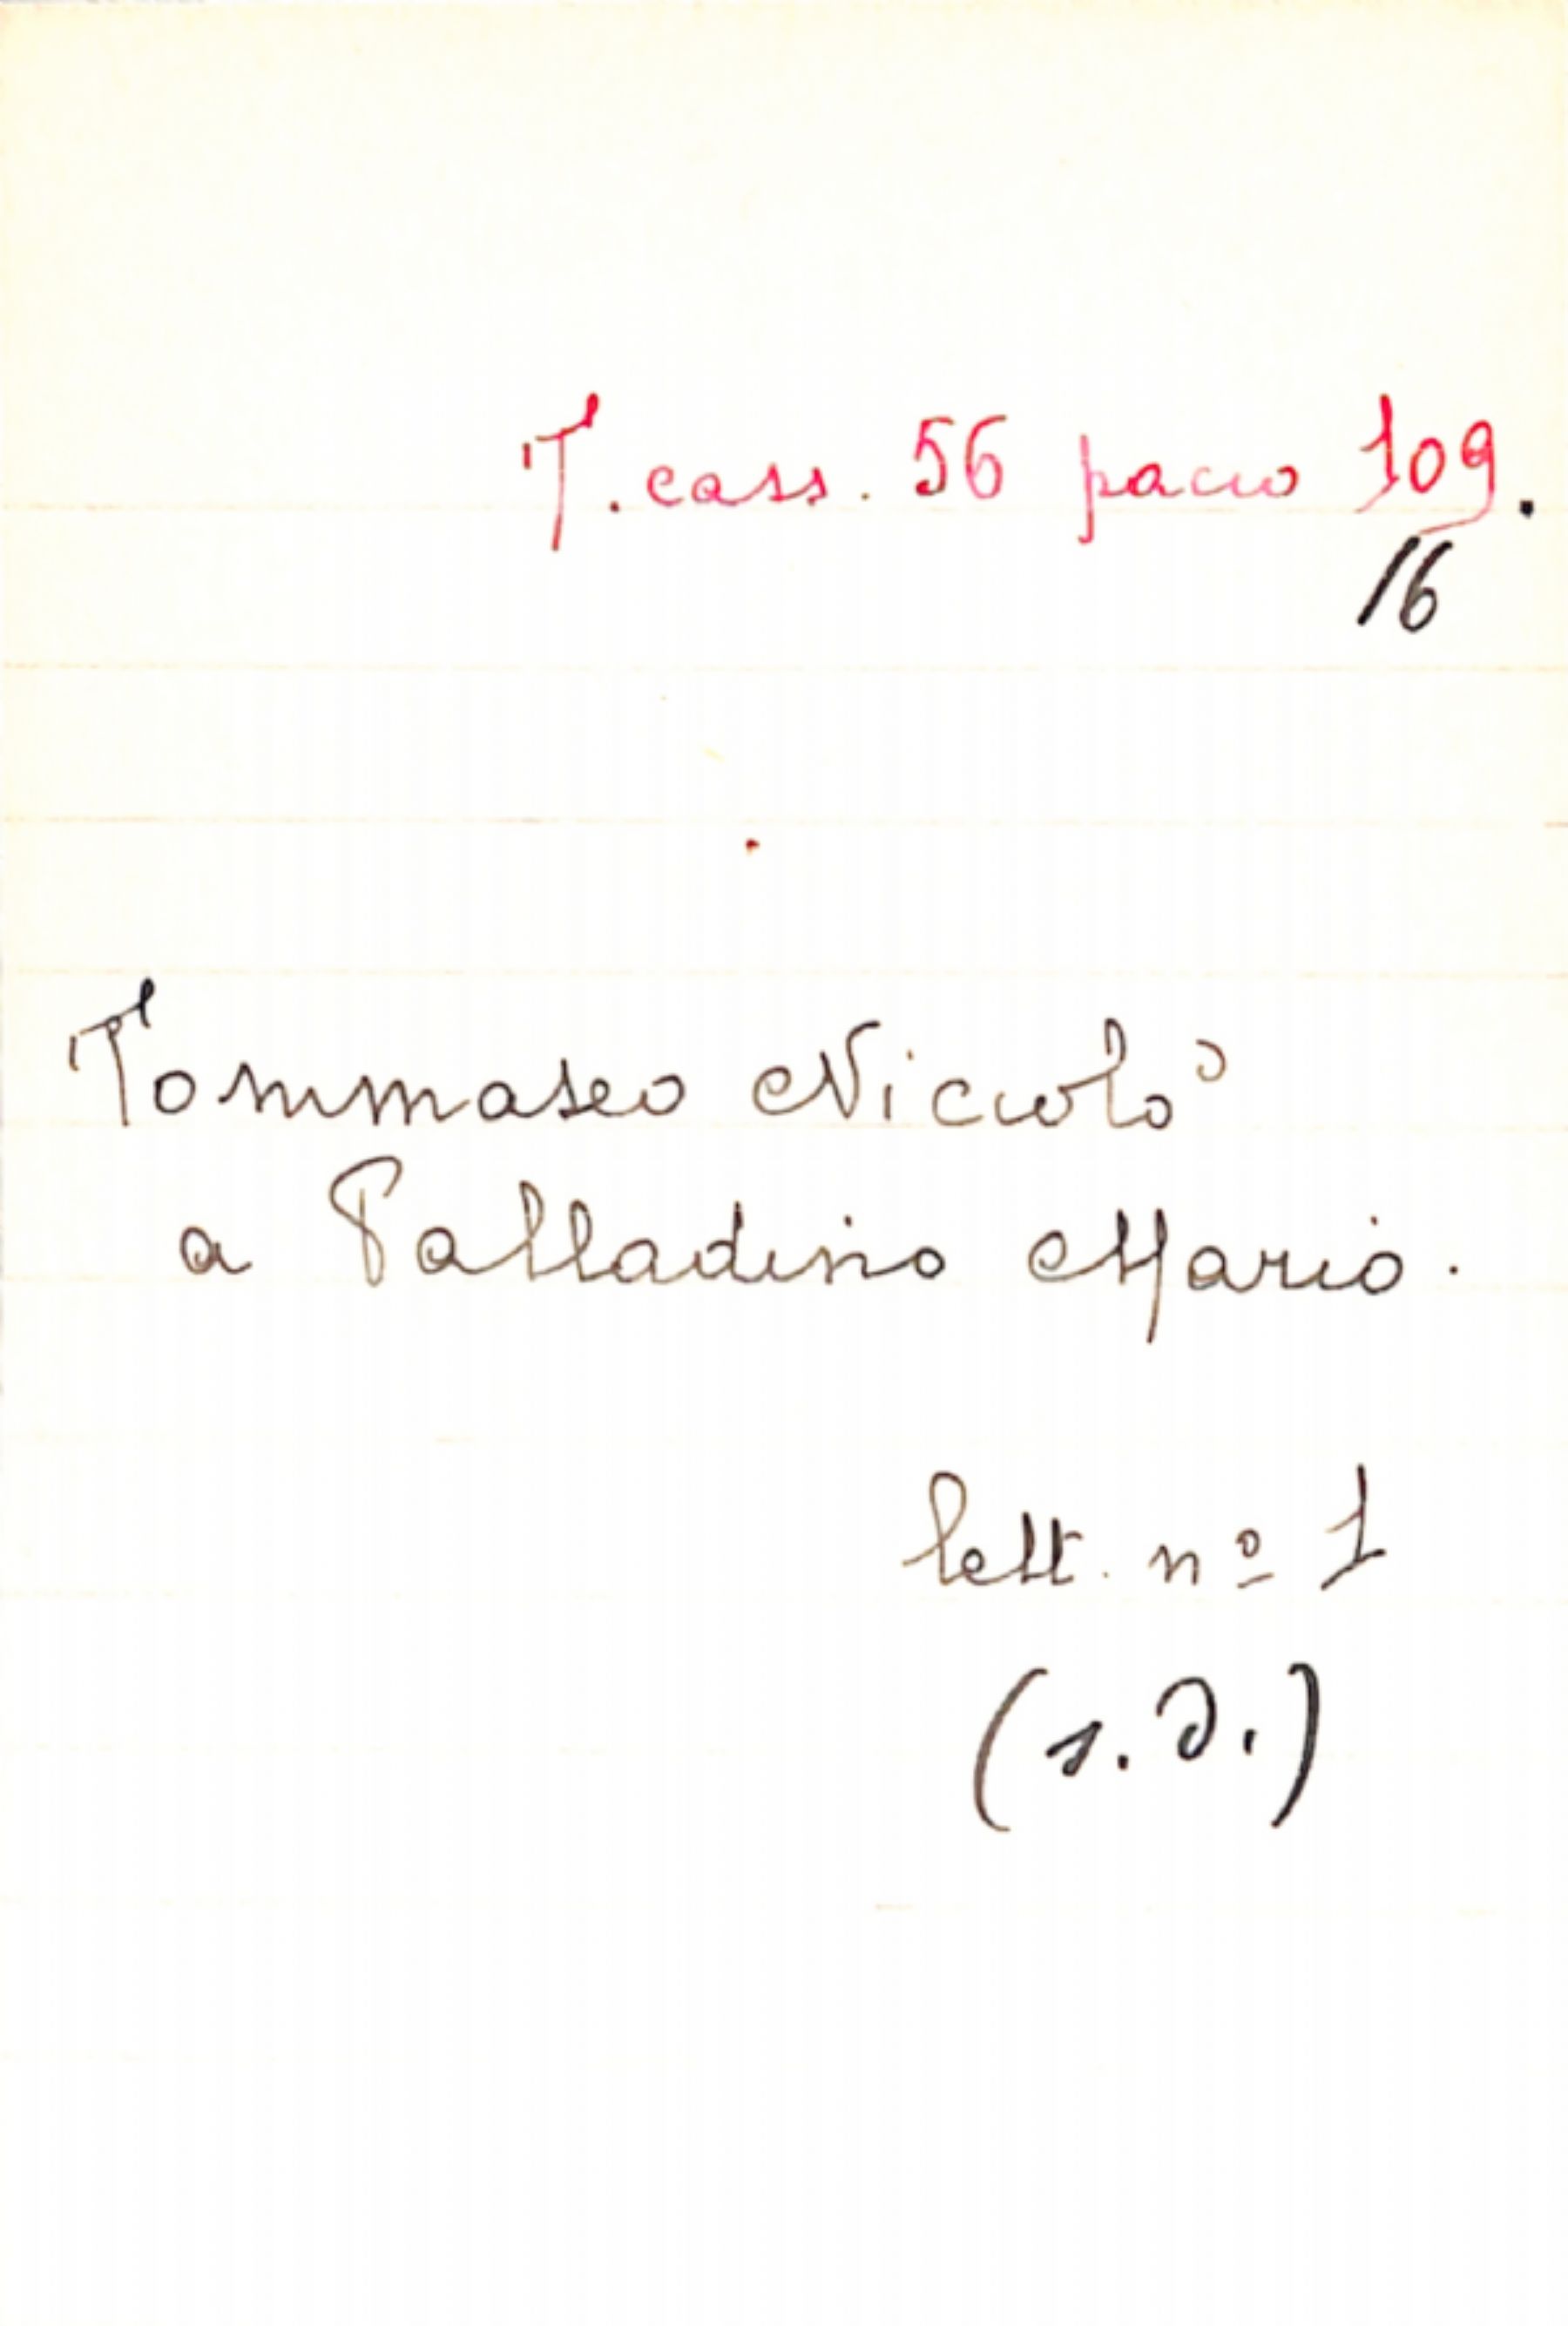 T. cass. 56 pacco 109.
16
Tommaseo Niccolò
a Palladino Mario.
lett. nº 1
(s.d.)